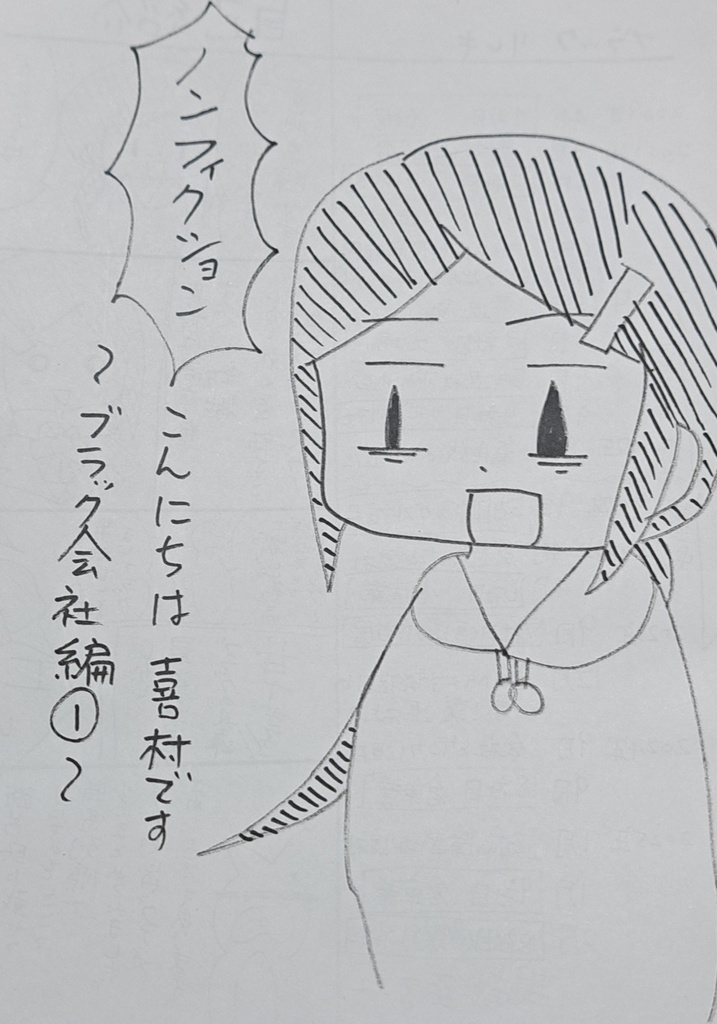 ノンフィクション
こんにちは 喜村です
～ブラック会社編①～